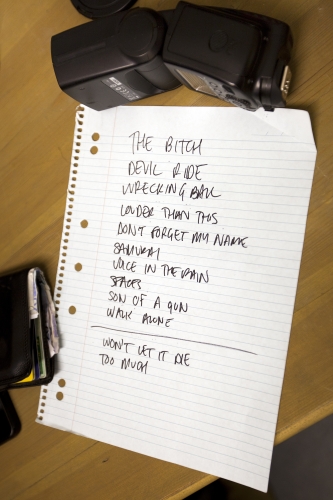 THE BITCH
DEVIL RIDE
WRECKING BALL
LOUDER THAN THIS
DON'T FORGET MY NAME
SAMURAI
VOICE IN THE RAIN
SPACES
SON OF A GUN
WALK ALONE
WON'T LET IT DIE
TOO MUCH